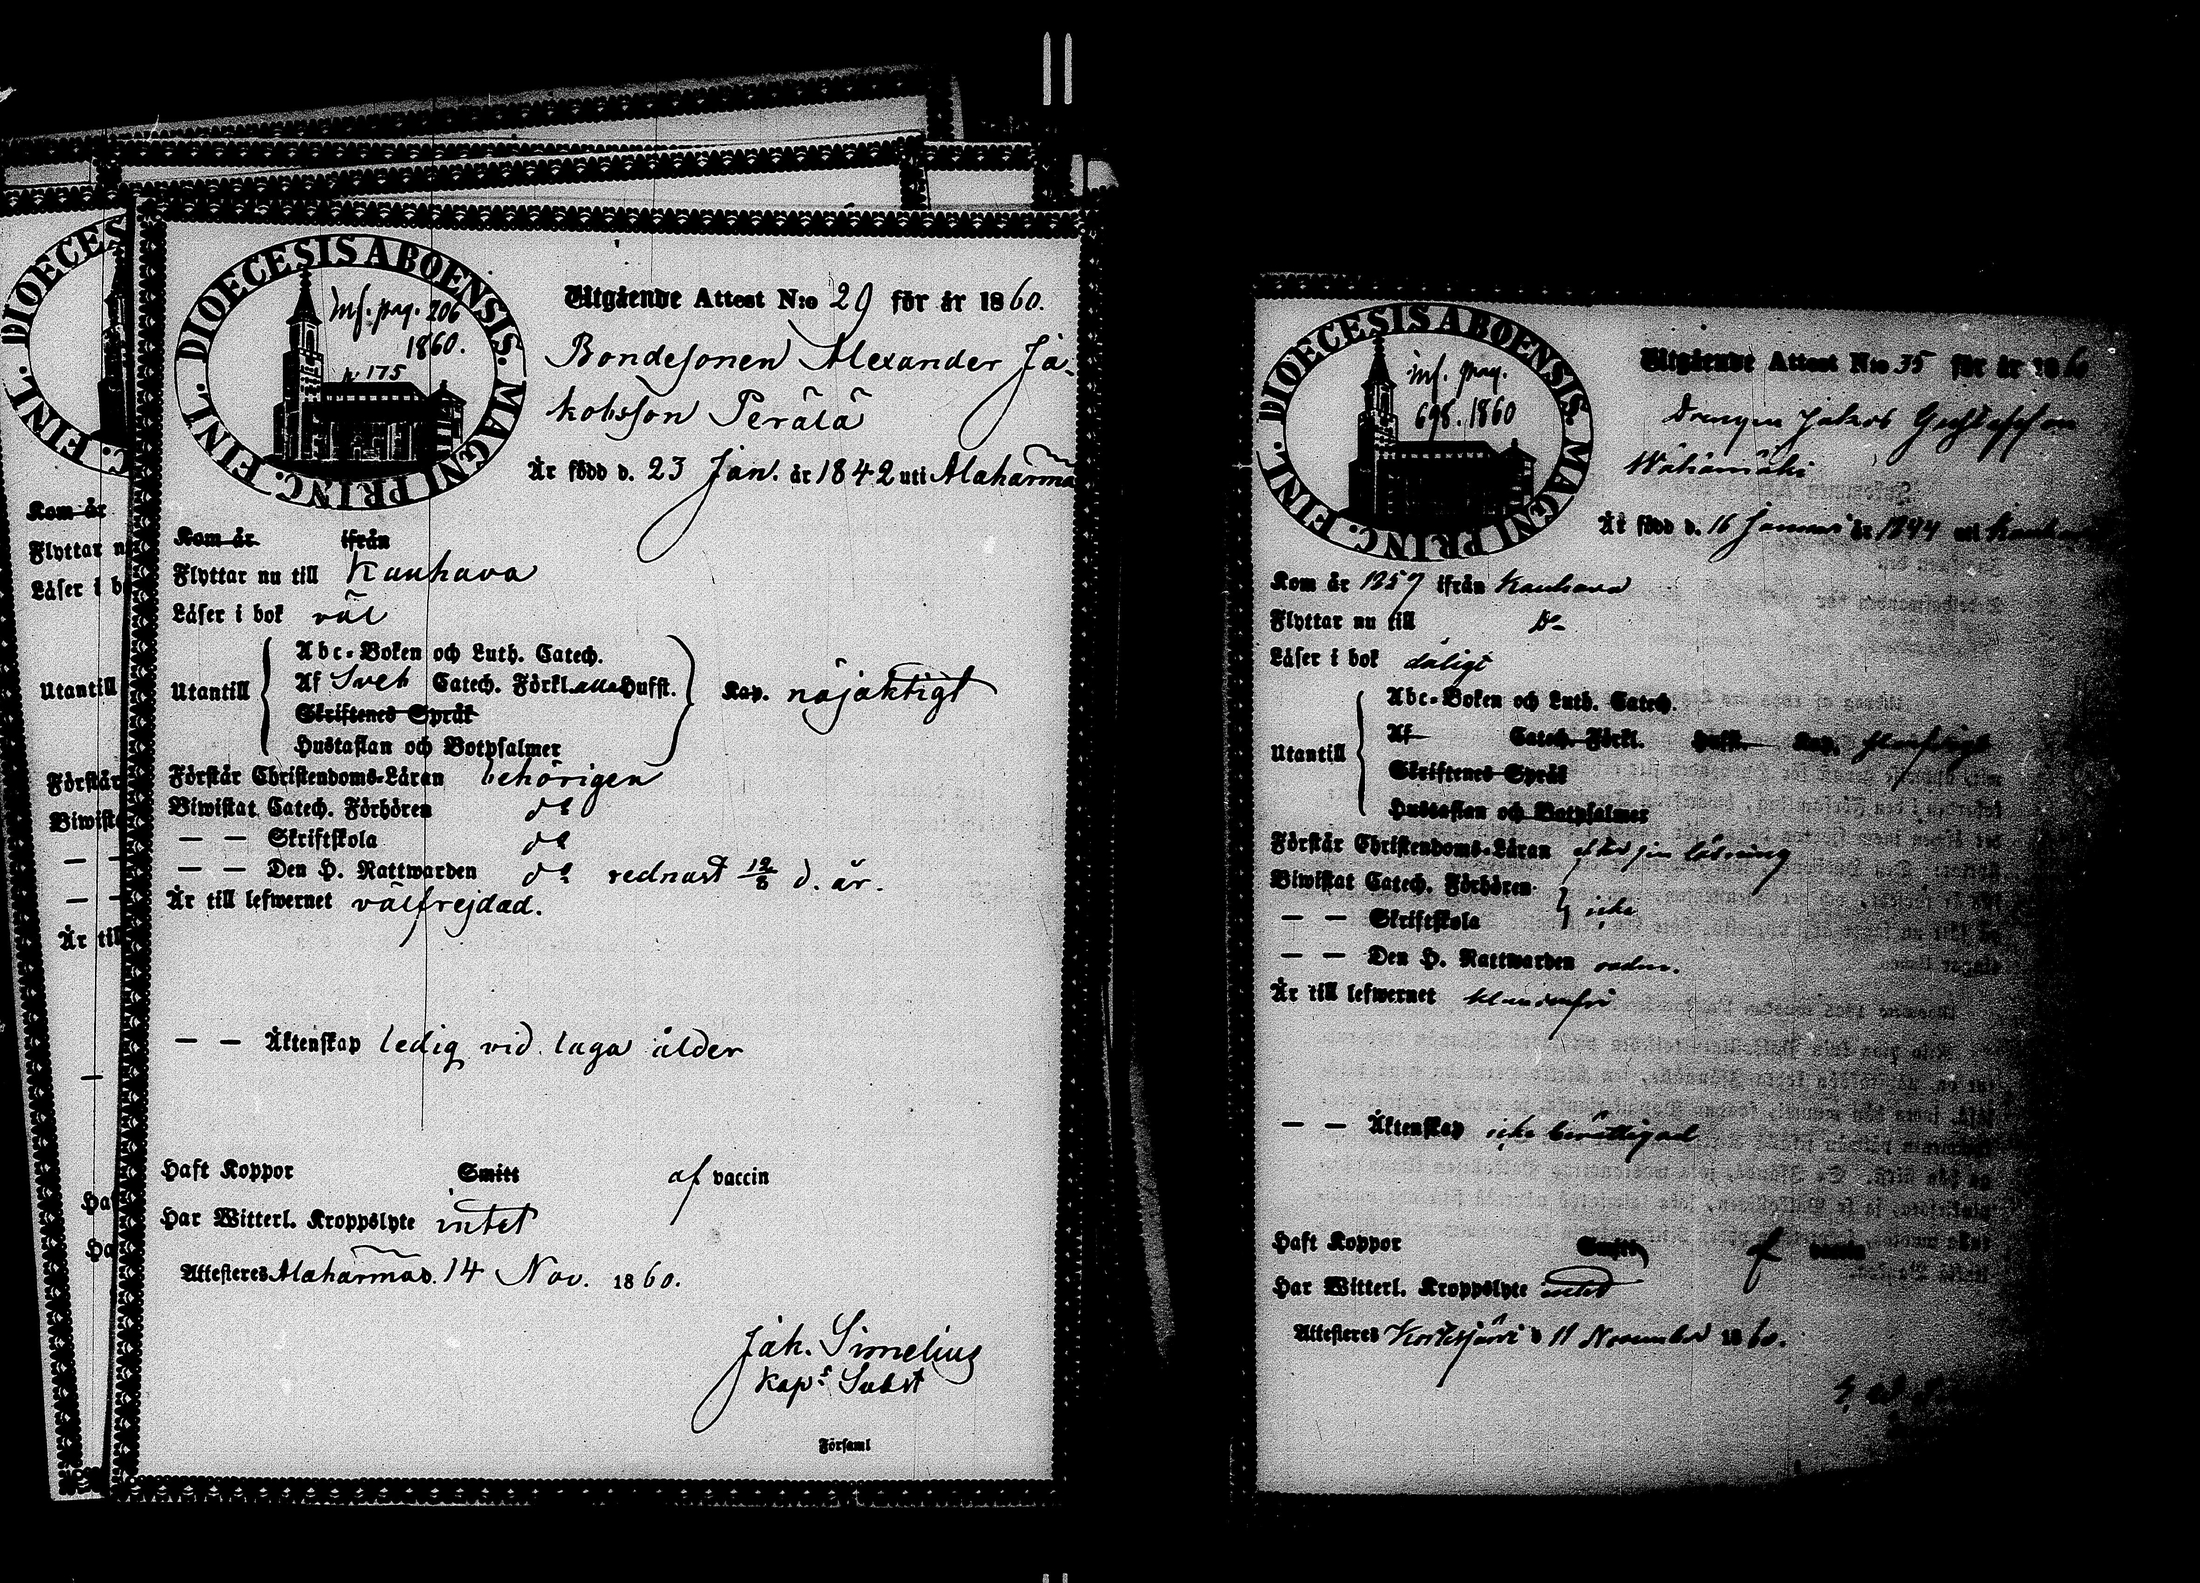 DIOECESIS
FINL.
Kom år
Flyttar n
Läser i b
Utantill
Förstår
Biwista
— —
— —
Är till
—
Ha
Ha
DIOECESIS ABOENSIS. MAGNI PRINC. FINL.
inf. pag. 206
1860.
p. 175
Utgående Attest N:o 29 för år 1860.
Bondesonen Alexander Ja-
kobsson Perälä
Är född d. 23 Jan. år 1842 uti Alahärmä
Kom år ifrån
Flyttar nu till Kauhava
Läser i bok väl
Utantill
Abc-Boken och Luth. Catech.
Af Sveb Catech. Förkl. Hufst. Kap. nöjaktigt
Skriftenes Språk
Hustaflan och Botpsalmer
Förstår Christendoms-Läran behörigen
Biwistat Catech. Förhören do
— — Skriftskola do
— — Den H. Nattwarden do sednast 12/8 d. år.
Är till lefwernet välfrejdad.
— — Äktenskap ledig vid laga ålder
Haft Koppor Smitt af vaccin
Har Witterl. Kroppslyte intet
Attesteres Alahärmä d. 14 Nov. 1860.
Jak. Simelius
Kaps Subst
Församl
DIOECESIS ABOENSIS. MAGNI PRINC. FINL.
inf. pag.
698. 1860
Utgående Attest N:o 35 för år 1860
Drengen Jakob Gustafsson
Wähämäki
Är född d. 16 Januari år 1844 uti Kauhava
Kom år 1857 ifrån Kauhava
Flyttar nu till Do
Läser i bok dåligt
Utantill
Abc-Boken och Luth. Catech.
Af Catech. Förkl. Hufst. Kap.
Skriftenes Språk
Hustaflan och Botpsalmer
Förstår Christendoms-Läran efter sin läsning
Biwistat Catech. Förhören
— — Skriftskola icke
— — Den H. Nattwarden
Är till lefwernet klanderfri
— — Äktenskap icke berättigad
Haft Koppor Smitt af vaccin
Har Witterl. Kroppslyte intet
Attesteres Kortesjärvi d 11 November 1860.